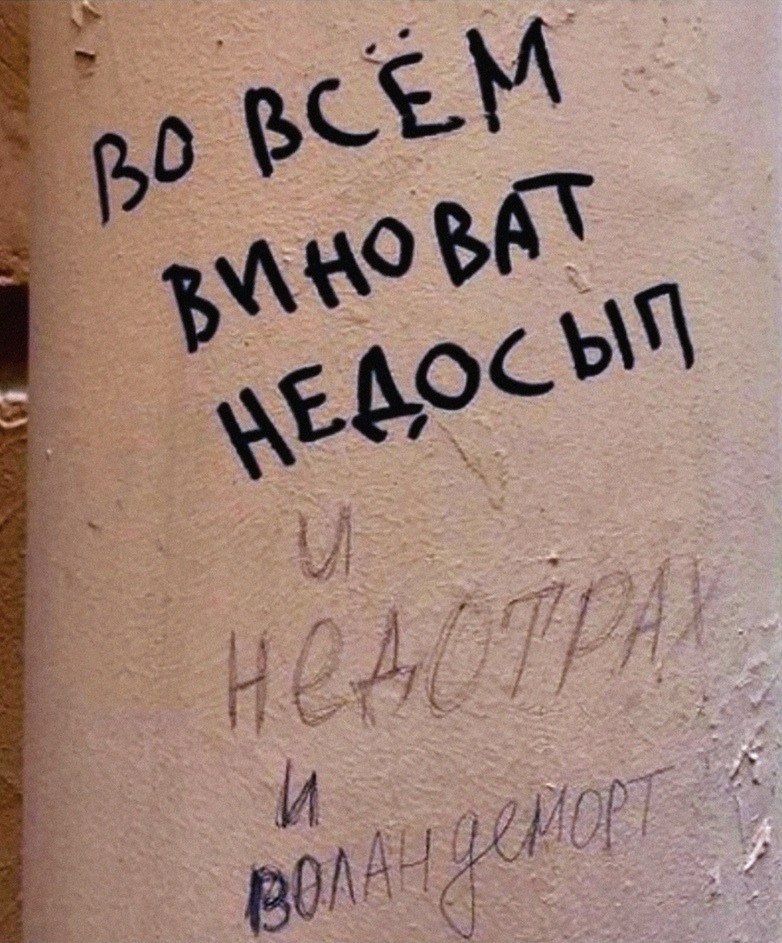 ВО ВСЁМ
ВИНОВАТ
НЕДОСЫП
и
НеДОТРАХ
и
ВОЛАНдеМОРТ